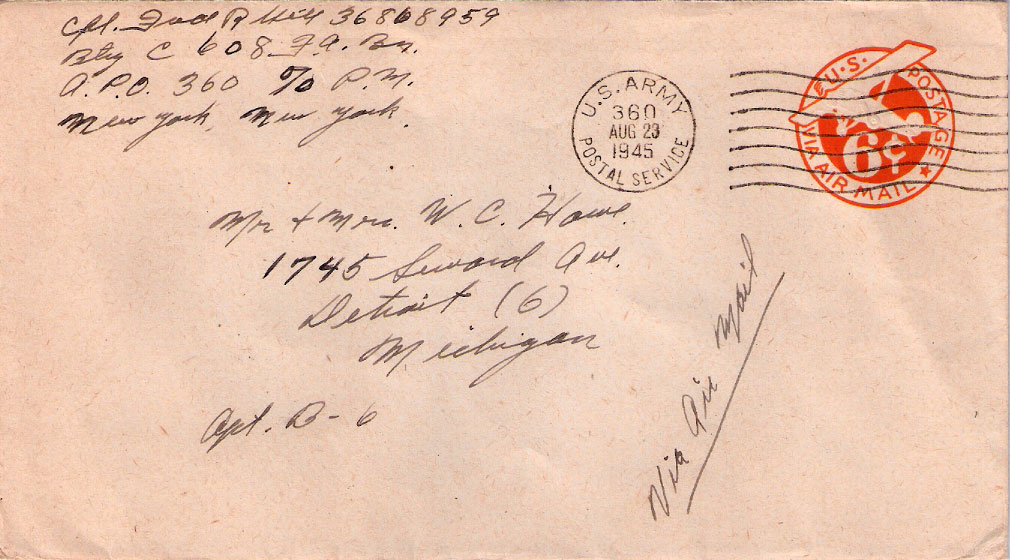 Cpl. Fred R 36868959
Btry C 608 F.A. Bn.
A.P.O. 360 % P.M.
New York, New York.
U.S. ARMY
360
AUG 23
1945
POSTAL SERVICE
U.S. POSTAGE
6¢
VIA AIR MAIL
Mr + Mrs. W. C. Howe.
1745 Seward Ave.
Detroit (6)
Michigan
Apt. B-6
Via Air Mail